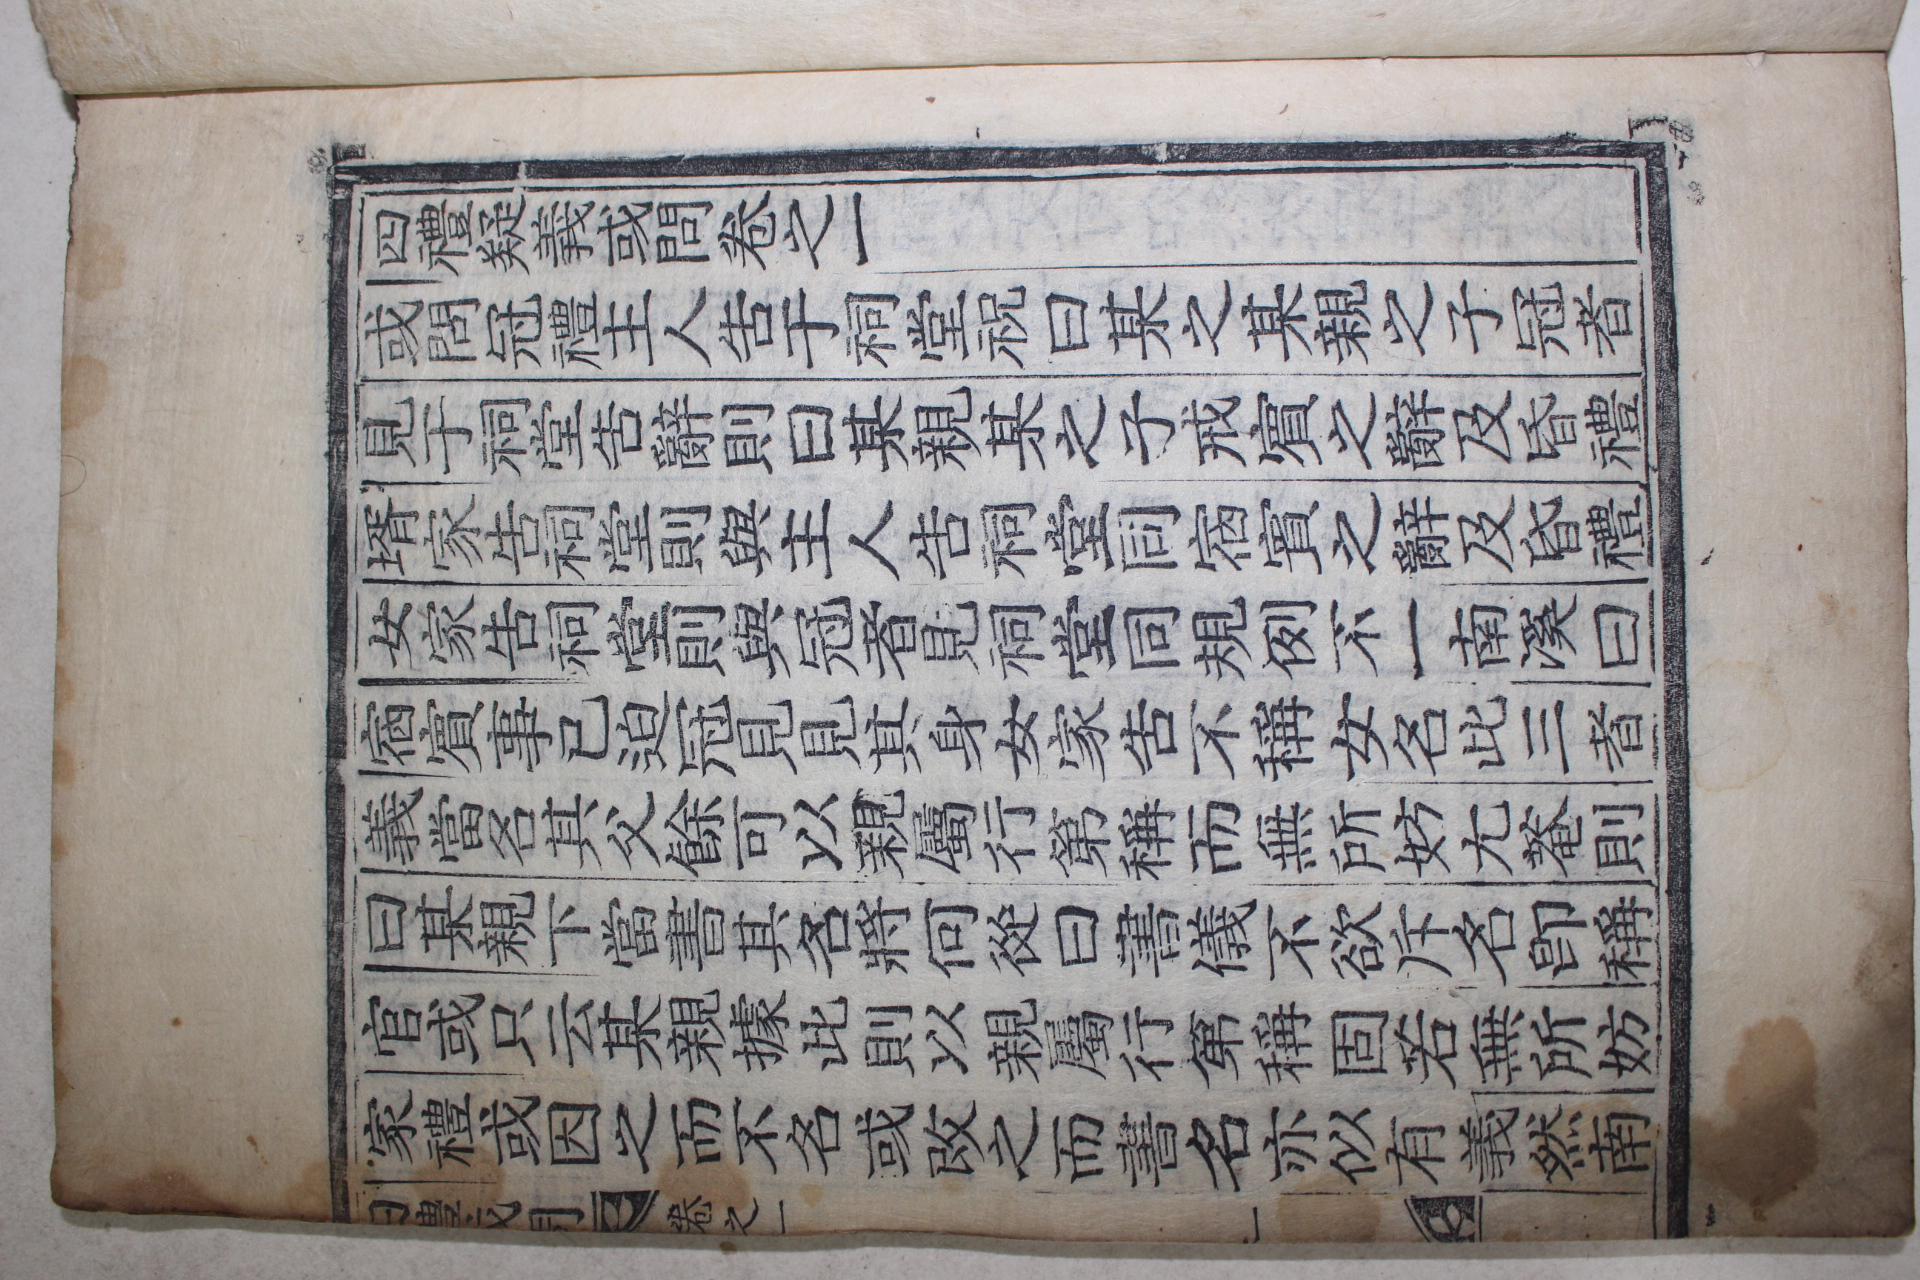 四禮疑義或問卷之一
或問冠禮主人告于祠堂祝曰某之某親之子冠者
見于祠堂告辭則曰某親某之子戒賓之辭及昏禮
壻家告祠堂則與主人告祠堂同宿賓之辭及昏禮
女家告祠堂則與冠者見祠堂同規例不一南溪曰
宿賓事已迫冠見見其身女家告不稱女名此三者
義當名其父餘可以親屬行第稱而無所妨尤菴則
曰某親下當書其名將何從曰書儀不欲斥名卽稱
官或只云某親據此則以親屬行第稱固若無所妨
家禮或因之而不名或改之而書名亦似有義然南
卷之一
一